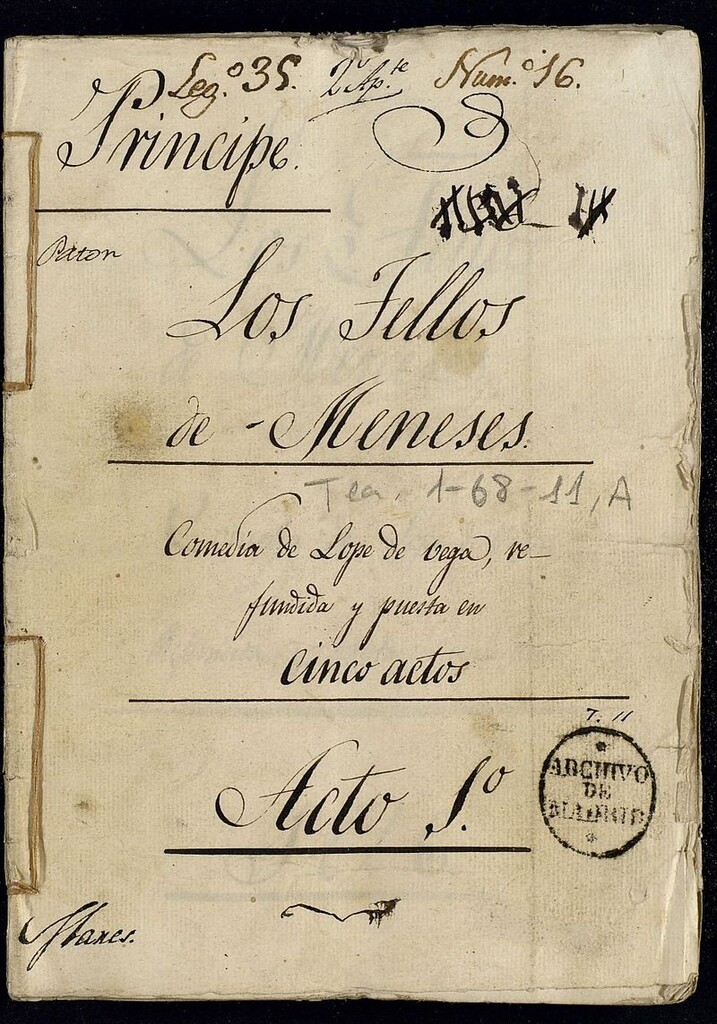 Leg.º 35. 2º Ap.te Num.º 16.
Principe.
Paton
Los Tellos
de - Meneses.
Tea. 1-68-11, A
Comedia de Lope de vega, re-
fundida y puesta en
Cinco actos
7. 11
Acto 1.º
ARCHIVO
DE
MADRID